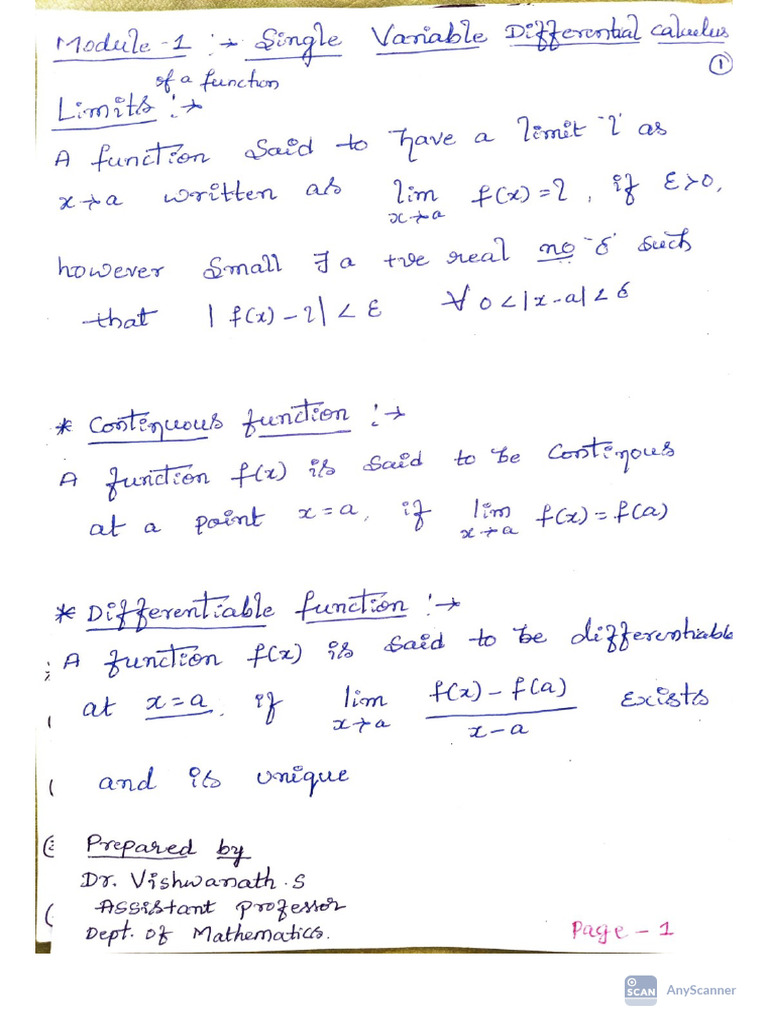 Module-1 :→ Single Variable Differential Calculus
①
of a function
Limits :→
A function said to have a limit 'l' as
x→a written as lim x→a f(x)=l, if ε>0,
however small ∃ a +ve real no 'δ' such
that |f(x)-l|<ε ∀ 0<|x-a|<δ
* Continuous function :→
A function f(x) is said to be continous
at a point x=a, if lim x→a f(x)=f(a)
* Differentiable function :→
A function f(x) is said to be differentiable
at x=a, if lim x→a (f(x)-f(a))/(x-a) exists
and is unique
Prepared by
Dr. Vishwanath.S
Assistant professor
Dept. of Mathematics.
Page-1
SCAN AnyScanner